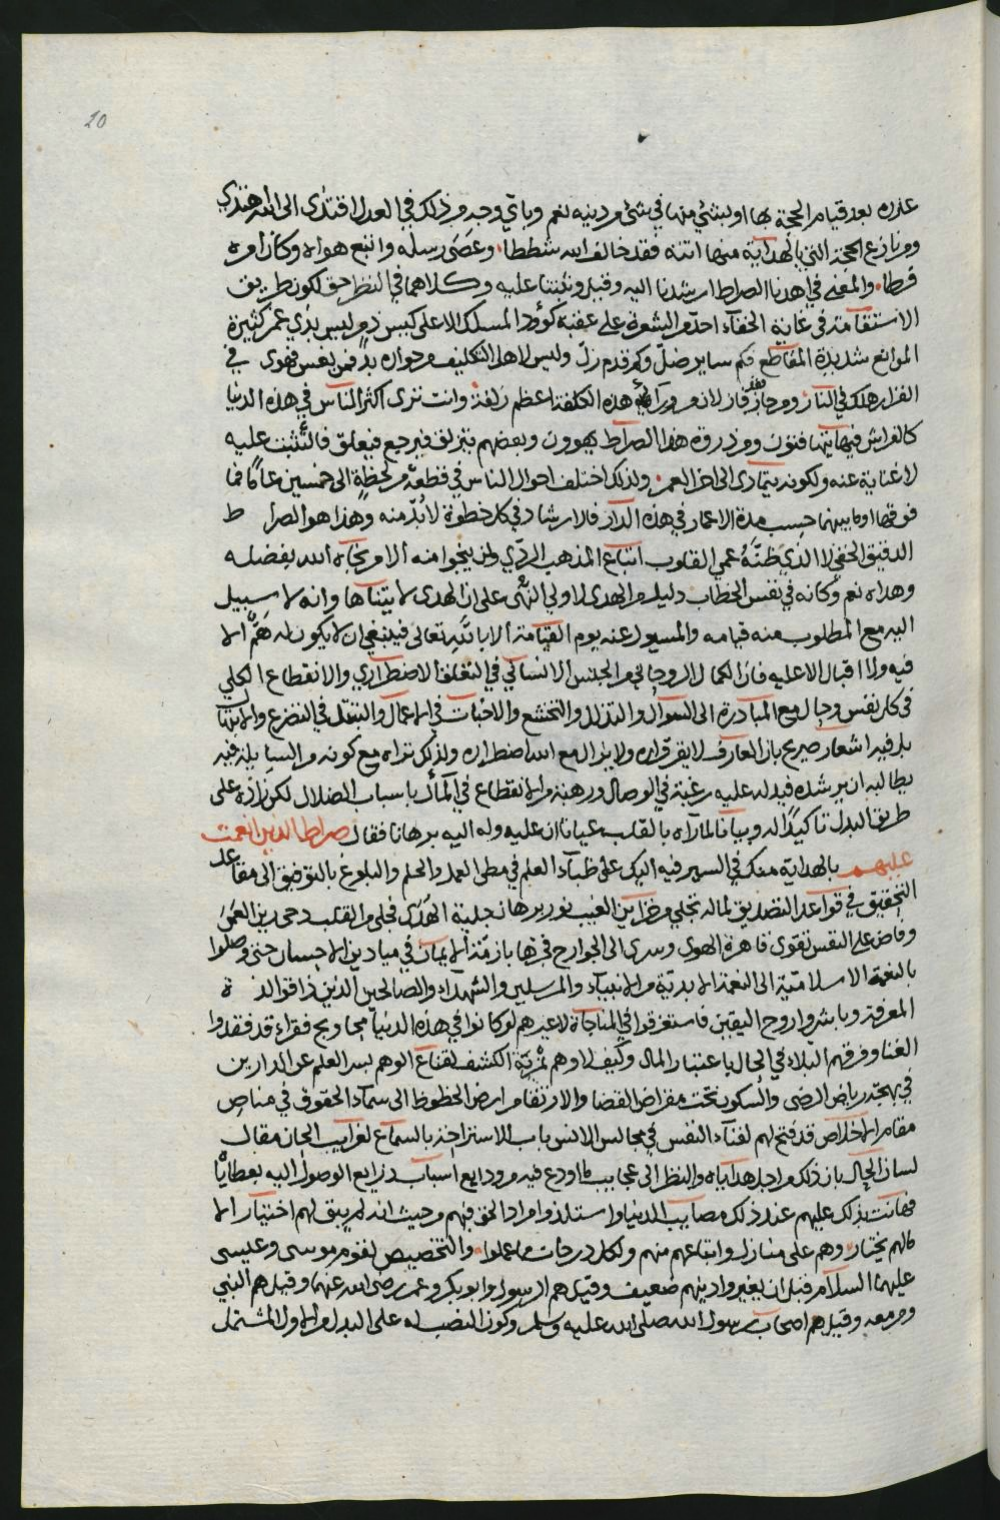 20
عذره بعد قيام الحجة بها او بشئ منها في شئ من دينه نعم وباي وجه من ذلك في العدل اقتدى الى الله اهتدى
ومن نازع الحجة التي بالهداية منها اتته فقد خالف الله شططا وعصى رسله واتبع هواه وكان امره
فرطا والمعنى في اهدنا الصراط ارشدنا اليه وقيل وثبتنا عليه وكلاهما في النظر حق لكون طريق
الاستقامة في غاية الخفآء احد من الشعرة على عقبة كؤد المسلك الاعلى كيس ذمر ليس بذي غمر كثيرة
الموانع شديدة المقاطع فكم ساير ضل وكم قدم زل وليس لاهل التكليف من جوازه بد فمن نفس فهوى في
القرار هلك في النار ومن جاز فقد فاز لان من ورآئه هذه الكلفة اعظم زلفة وانت ترى اكثر الناس في هذه الدنيا
كالفراش فيها يتهافتون ومن ذروة هذا الصراط يهوون وبعضهم يتزلق فيرجع فيعلق فالتثبت عليه
لا غناية عنه ولكونه يتمادى الى اخر العمر ولذلك اختلف احوال الناس في قطعه من لحظة الى خمسين عاما فما
فوقها وما بينهما حسب مدة الاعمار في هذه الدار فالارشاد في كل خطوة لا بد منه وهذا هو الصراط
الدقيق الخفي لا الذي ظنه عمي القلوب اتباع المذهب الردي ولن ينجوا منه الا من نجاه الله بفضله
وهداه نعم وكانه في نفس الخطاب دليل من الهدى لاولي النهى على ان الهدى لا يتناها وانه لا سبيل
اليه مع المطلوب منه قيامه والمسول عنه يوم القيامة الا بالله تعالى فينبغي ان لا يكون له هم الا
فيه ولا اقبال الا عليه فان الكمال الروحاني من الجنس الانساني في التعلق الاضطراري والانقطاع الكلي
في كل نفس وحال مع المبادرة الى السوال والتذلل والتخشع والاخبات في الاعمال والتبتل في التضرع والابتهال
بل فيه اشعار صريح بان العارف لا يقر قراره ولا يزال مع الله اضطراره ولذلك تراه مع كونه من السايلين فيه
يطالبه ان يرشده فيدله عليه رغبة في الوصال ورهبة من الانقطاع في المآل باسباب الضلال لكن زاده على
طريق البدل تاكيدا له وبيانا لما رآه بالقلب عيانا ان عليه وله اليه برهانا فقال صراط الذين انعمت
عليهم بالهداية منك في السير فيه اليك على ظباء العلم في مطى العمل والحلم والبلوغ بالتوفيق الى مقاعد
التحقيق في قواعد التصديق لما له تجلي من خزاين الغيب نور برهان جلية الهدى فجلى من القلب دجى رين العمى
وفاض على النفس تقوى قاهرة الهوى وسرى الى الجوارح فجرها بازمة الايمان في ميادين الاحسان حتى وصلوا
بالنعمة الاسلامية الى النعمة الابدية من الانبياء والمرسلين والشهدآء والصالحين الذين ذاقوا لذة
المعرفة وباشروا روح اليقين فاستغرقوا في المناجاة لا غيرهم لو كانوا في هذه الدنيا محاويج فقراء قد فقدوا
الغنا وفرقهم البلاء في الحال باعتبار المال وكيف لا وهم بمزية الكشف لقناع الوهم بسر العلم عن الدارين
في بهجة رياض الرضى والسكون تحت مقراض القضا والارتقا من ارض الحظوظ الى سماء الحقوق في مناص
مقام الاخلاص قد فتح لهم لفناء النفس في مجالس الانس باب الاستراحة بالسماع لغرايب الحان مقال
لسان الحال بان ذلك من اجل هداياه والنظر الى عجايب ما اودع فيه من ودايع اسباب ذرايع الوصول اليه بعطاياه
فهانت بذلك عليهم عند ذلك مصايب الدنيا واستلذوا مراد الحق فيهم من حيث انه لم يبق لهم اختيار الا
ما لهم يختار وهم على منازل واتباعهم منهم ولكل درجات مما عملوا والتخصيص لقوم موسى وعيسى
عليهما السلام قبل ان يغيروا دينهم ضعيف وقيل هم الرسول وابو بكر وعمر رضي الله عنهما وقيل هم النبي
ومن معه وقيل هم اصحاب رسول الله صلى الله عليه وسلم وكون النصب له على البدل من الاول المشتمل